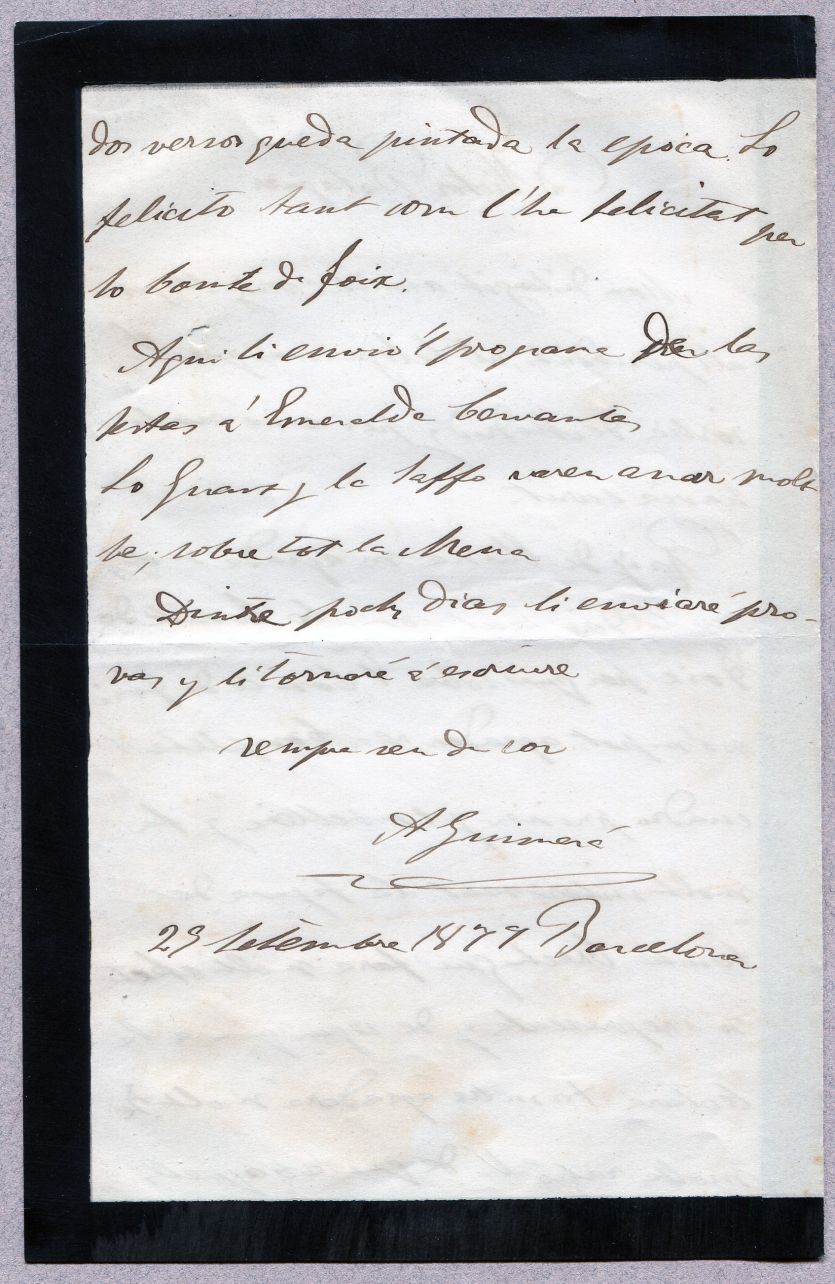 dos versos queda pintada la epoca. Lo
felicito tant com l'he felicitat per
lo Comte de Foix.
Aqui li envio l'programa de las
festas á Esmeralda Cervantes
Lo y la Saffo varen anar molt
be; sobre tot la Mena
Dintre pochs dias li enviaré pro-
vas y li tornaré á escriure
sempre seu de cor
A Guimerá
29 Setembre 1879 Barcelona